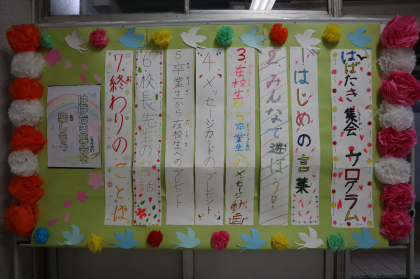 はばたき集会 プログラム
1.はじめの言葉
2.みんなで遊ぼう!
3.在校生から卒業生へのメッセージ動画
4.メッセージカードのプレゼント
5.卒業生から在校生へのプレゼント
6.校長先生のお話
7.終わりのことば